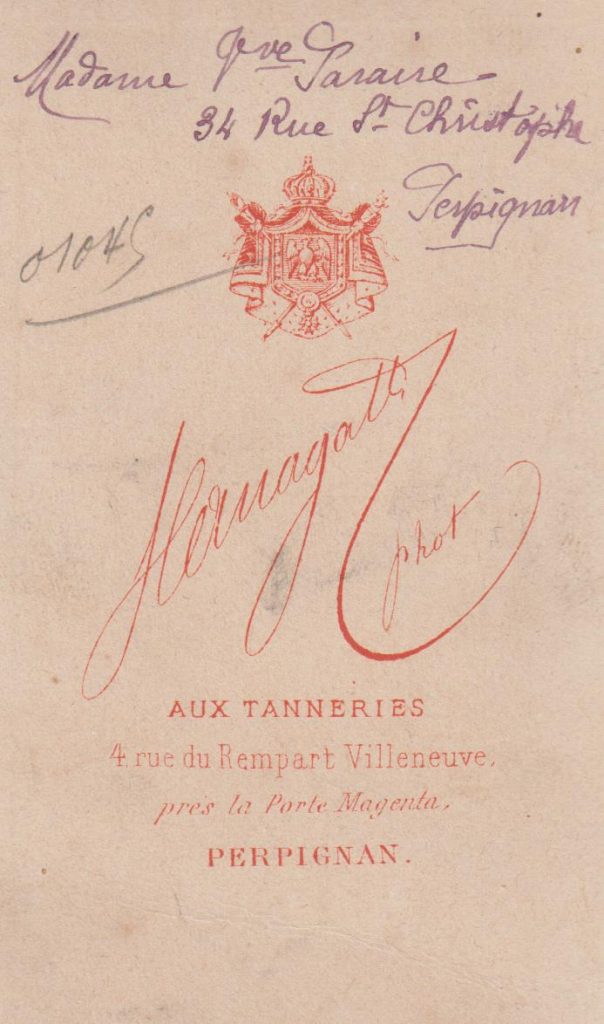 Madame Vve
34 Rue St Christophe
Perpignan
01045
phot
AUX TANNERIES
4, rue du Rempart Villeneuve,
près la Porte Magenta,
PERPIGNAN.